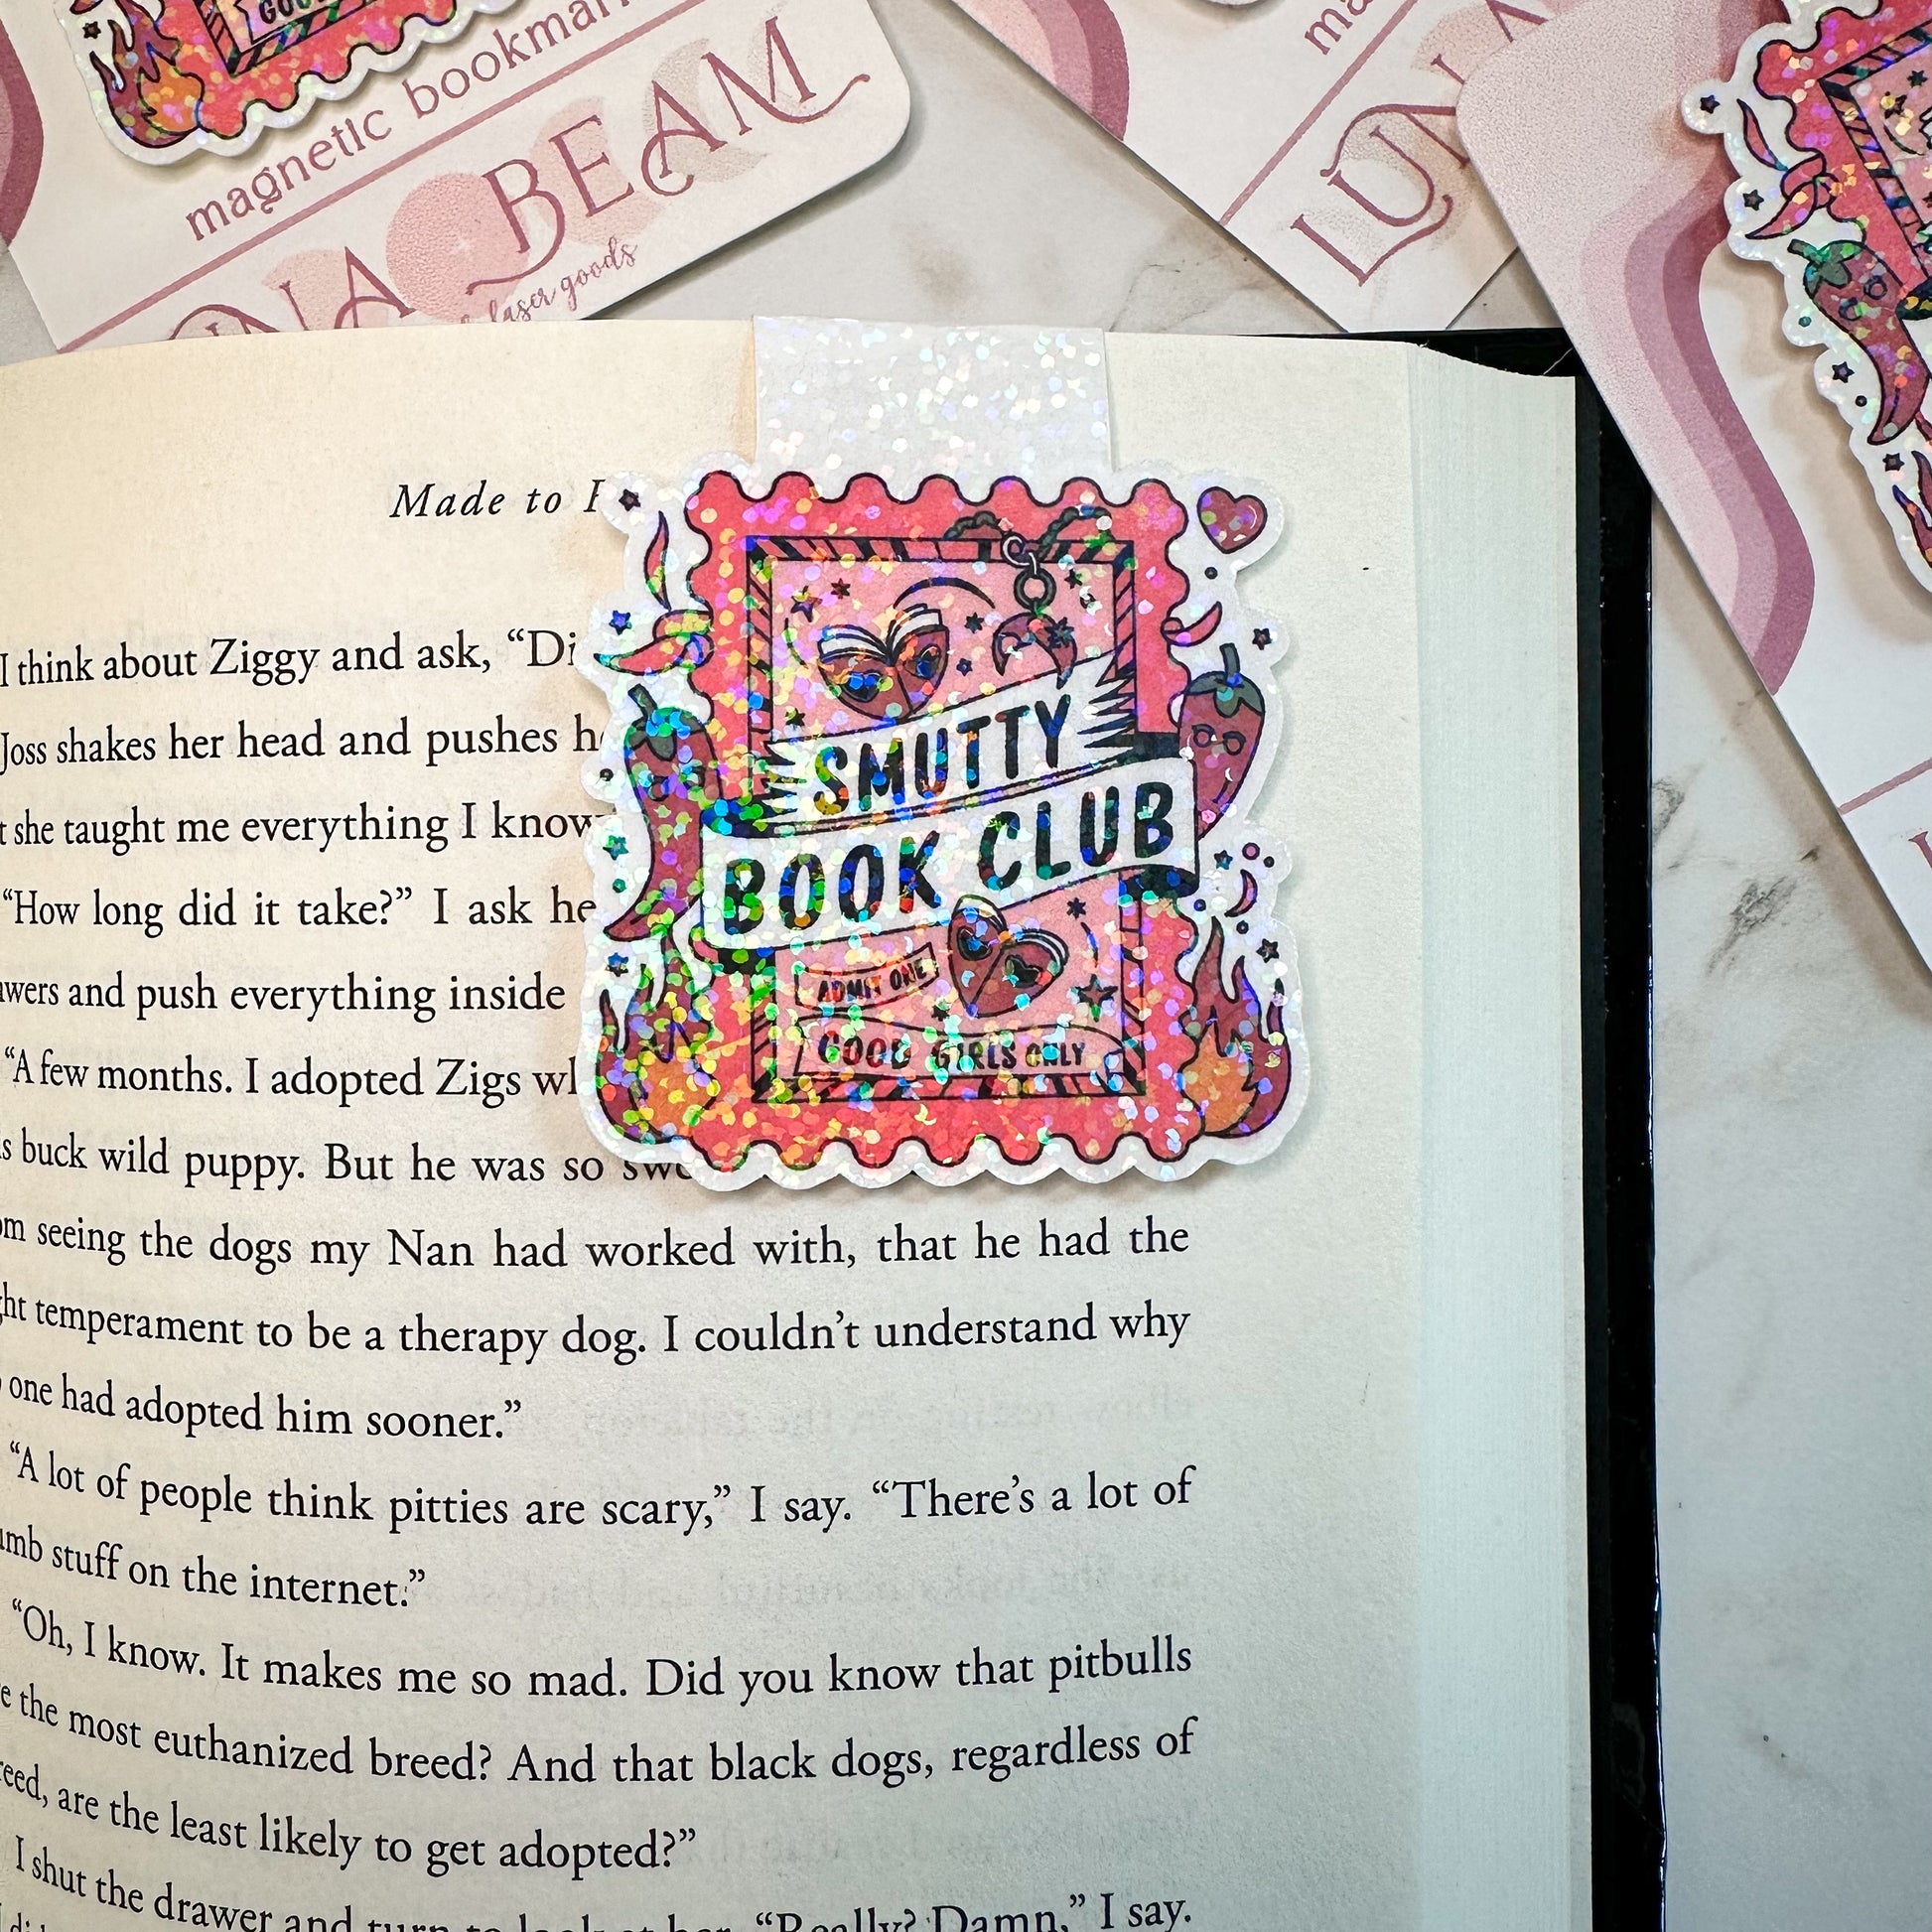 GOOD
magnetic bookmark
BEAM
laser goods
LUNA
Made to
I think about Ziggy and ask, “Di
Joss shakes her head and pushes
she taught me everything I know
“How long did it take?” I ask he
and push everything inside
“A few months. I adopted Zigs
buck wild puppy. But he was so
seeing the dogs my Nan had worked with, that he had the
temperament to be a therapy dog. I couldn’t understand why
one had adopted him sooner.”
“A lot of people think pitties are scary,” I say. “There’s a lot of
stuff on the internet.”
“Oh, I know. It makes me so mad. Did you know that pitbulls
the most euthanized breed? And that black dogs, regardless of
are the least likely to get adopted?”
I shut the drawer and turn to look at her. “Really? Damn,” I say.
SMUTTY
BOOK CLUB
ADMIT ONE
GOOD GIRLS ONLY